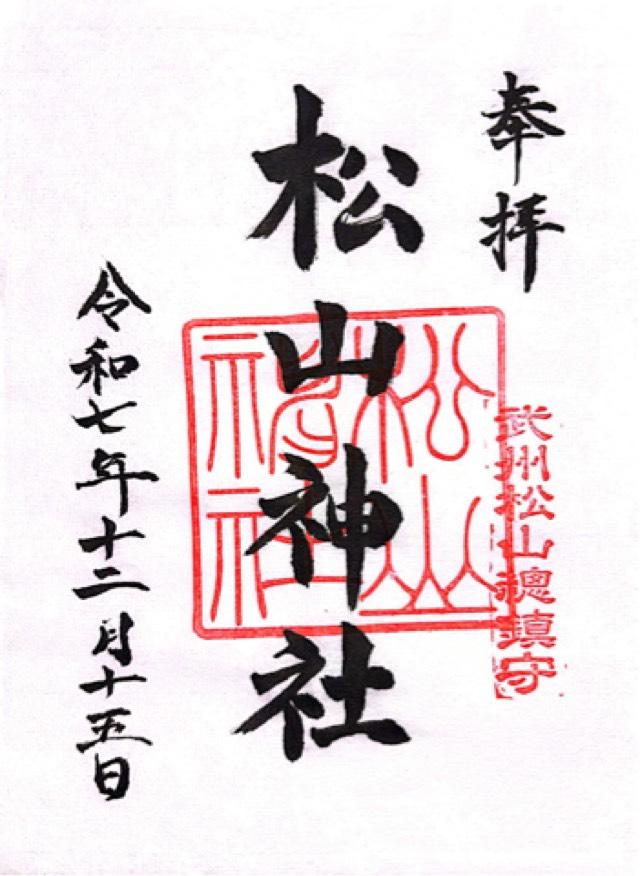 奉拝
武州松山總鎮守
松山神社
松山神社
令和七年十二月十五日